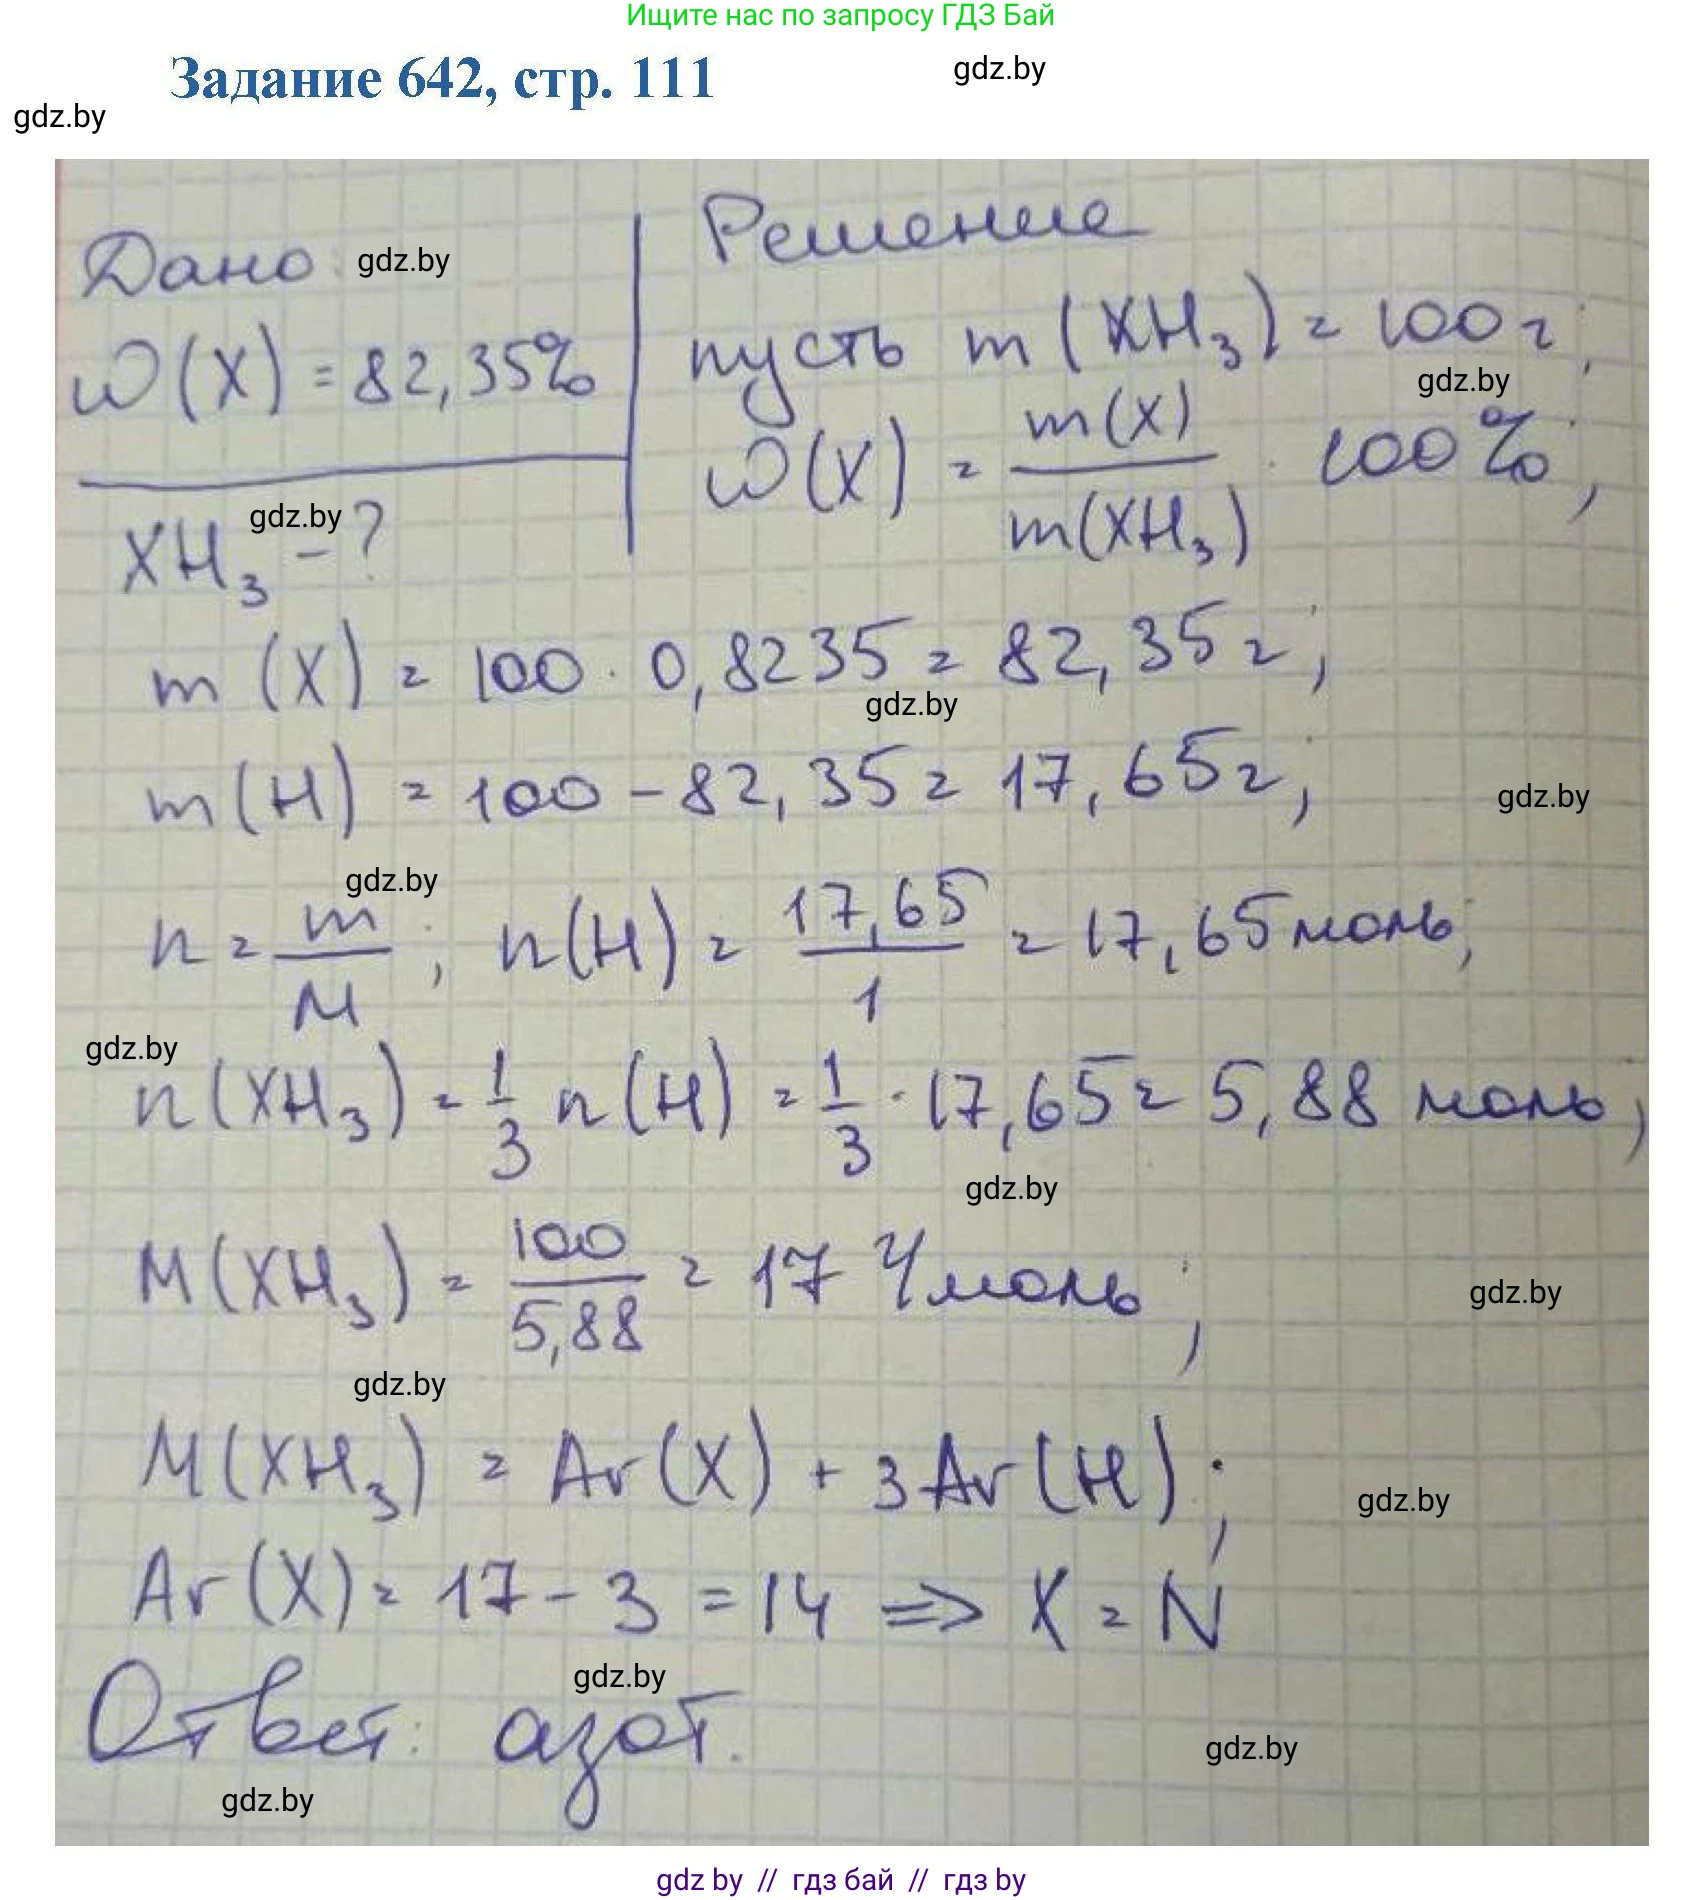 Ищите нас по запросу ГДЗ Бай
Задание 642, стр. 111
gdz.by
gdz.by
Дано: gdz.by
ω(X) = 82,35%
gdz.by
XH₃ - ?
Решение
пусть m(XH₃) = 100 г;
gdz.by
ω(X) = m(X) / m(XH₃) · 100%;
m(X) = 100 · 0,8235 = 82,35 г;
gdz.by
m(H) = 100 - 82,35 = 17,65 г;
gdz.by
gdz.by
n = m / M; n(H) = 17,65 / 1 = 17,65 моль;
gdz.by
n(XH₃) = 1/3 n(H) = 1/3 · 17,65 = 5,88 моль;
gdz.by
M(XH₃) = 100 / 5,88 = 17 г/моль;
gdz.by
gdz.by
M(XH₃) = Ar(X) + 3Ar(H);
gdz.by
Ar(X) = 17 - 3 = 14 => X = N
gdz.by
Ответ: азот.
gdz.by
gdz.by
gdz by // гдз бай // gdz by